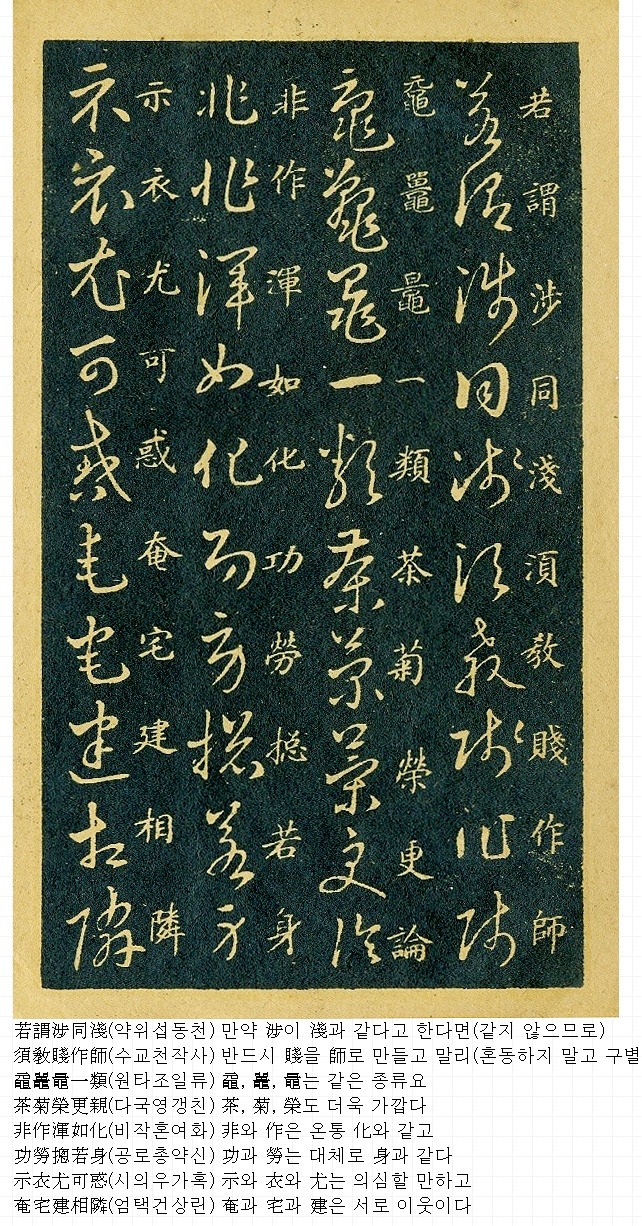 若謂涉同淺湏教賤作師
若謂涉同淺湏教賤作師
黿鼉鼂一類茶菊榮更論
黿鼉鼂一類茶菊榮更論
非作渾如化功勞摠若身
非作渾如化功勞摠若身
示衣尤可惑奄宅建相隣
示衣尤可惑奄宅建相隣
若謂涉同淺(약위섭동천) 만약 涉이 淺과 같다고 한다면(같지 않으므로)
須敎賤作師(수교천작사) 반드시 賤을 師로 만들고 말리(혼동하지 말고 구별
黿鼉鼂一類(원타조일류) 黿, 鼉, 鼂는 같은 종류요
茶菊榮更親(다국영갱친) 茶, 菊, 榮도 더욱 가깝다
非作渾如化(비작혼여화) 非와 作은 온통 化와 같고
功勞摠若身(공로총약신) 功과 勞는 대체로 身과 같다
示衣尤可惑(시의우가혹) 示와 衣와 尤는 의심할 만하고
奄宅建相隣(엄택건상린) 奄과 宅과 建은 서로 이웃이다